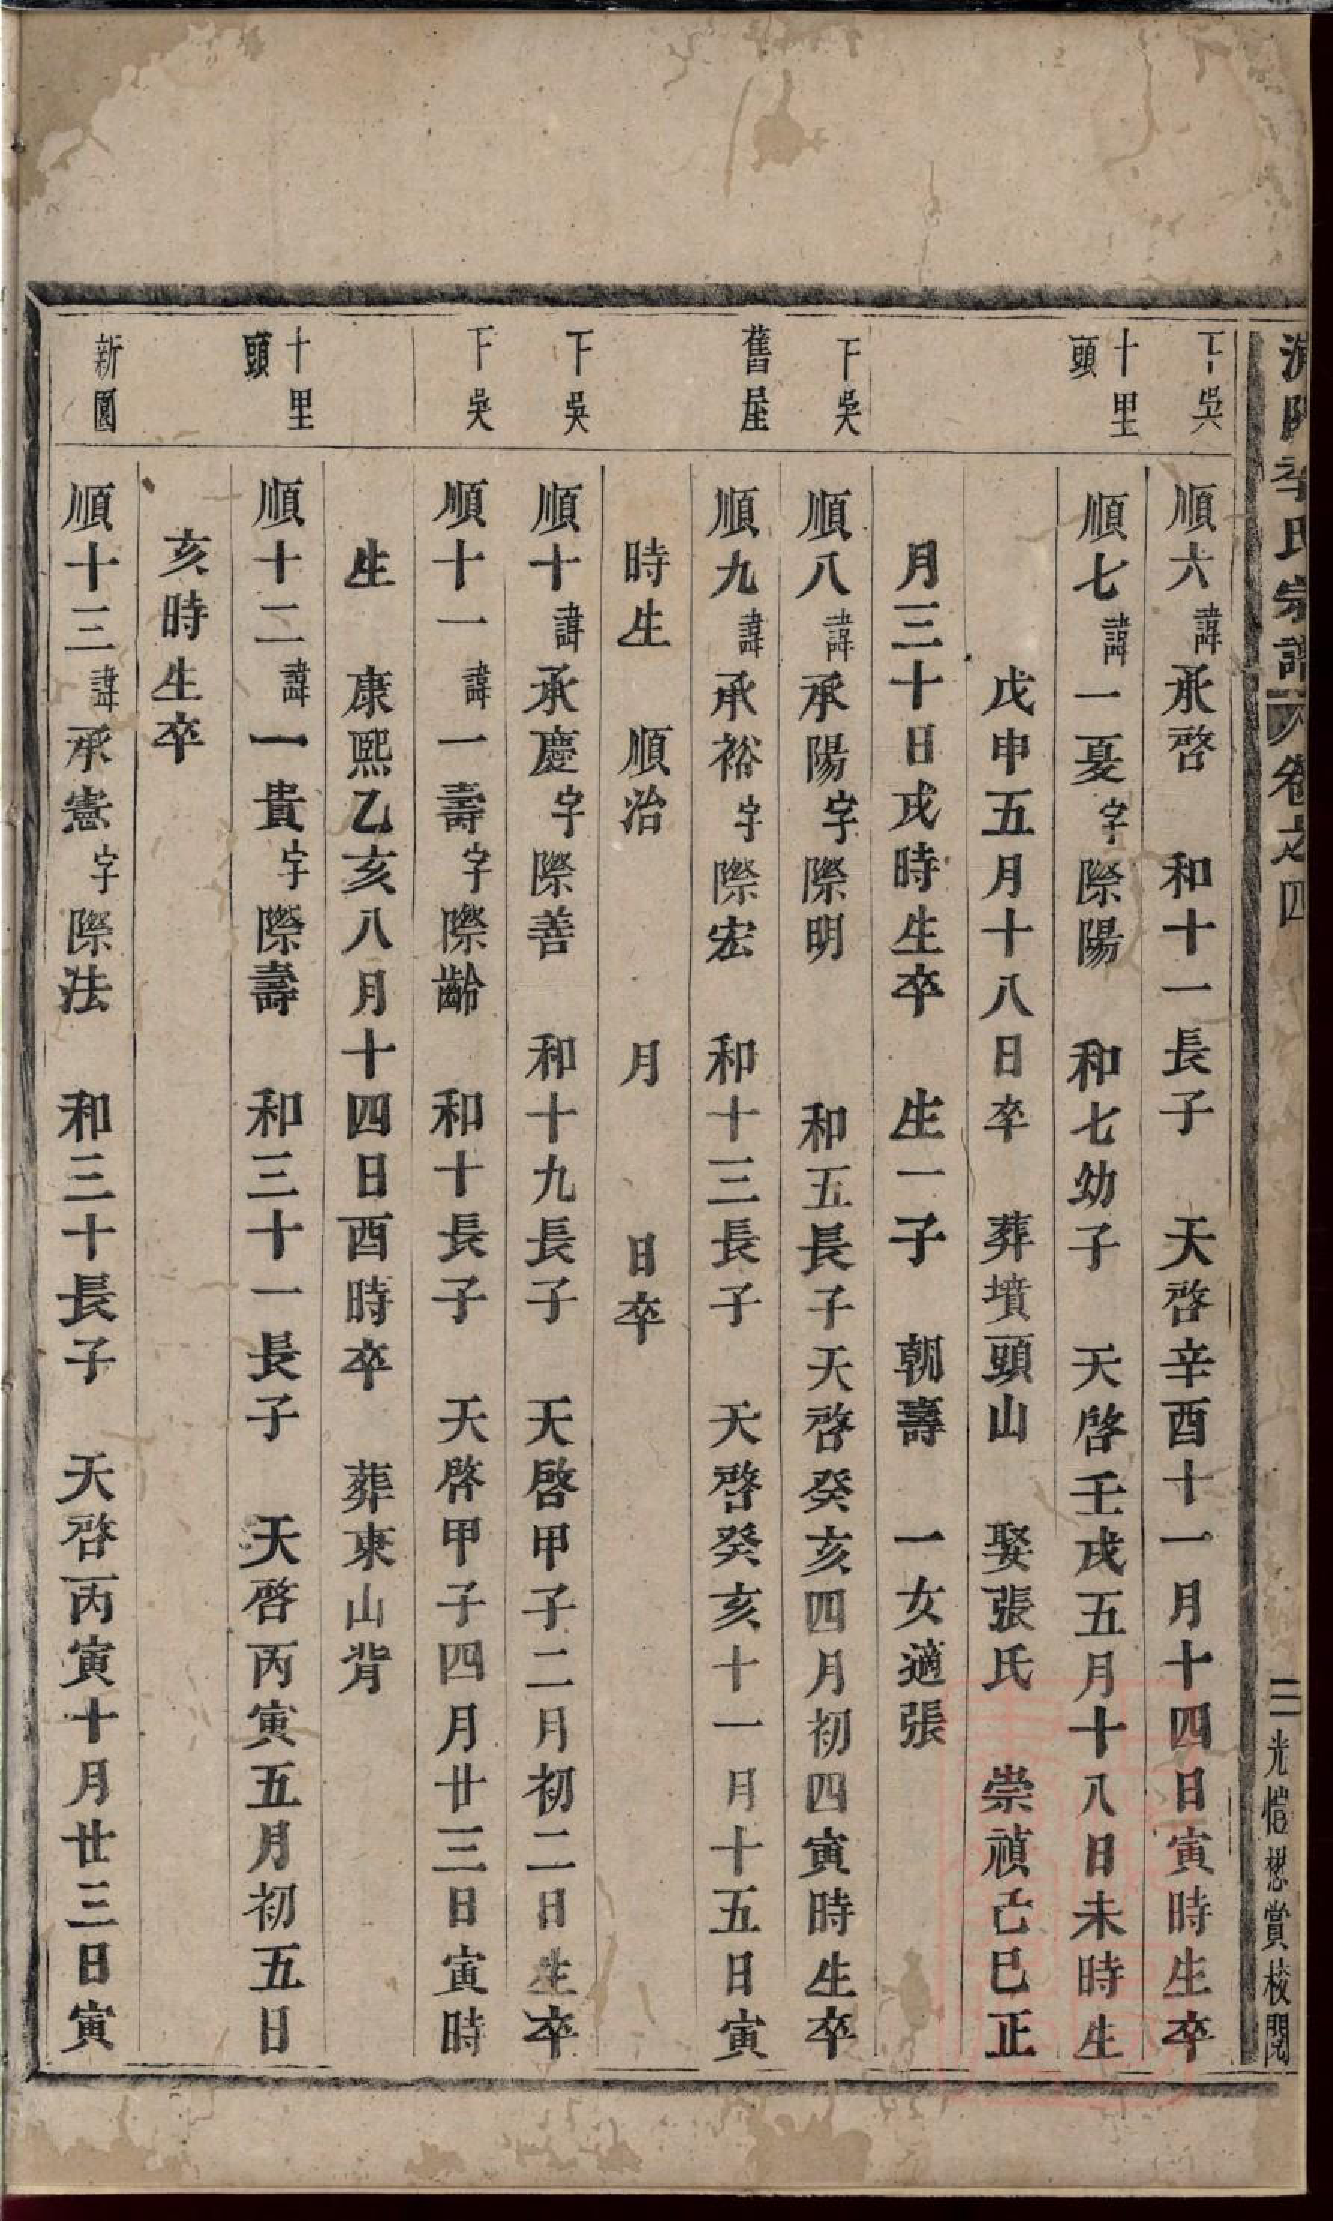 氏宗譜 卷之四 三 光愷懋賞校閱
下吳 順六諱承啓 和十一長子 天啓辛酉十一月十四日寅時生卒
十里頭 順七諱一憂字際陽 和七幼子 天啓壬戌五月十八日未時生
戊申五月十八日卒 葬墳頭山 娶張氏 崇禎己巳正
月三十日戌時生卒 生一子 朝壽 一女適張
下吳 順八諱承陽字際明 和五長子天啓癸亥四月初四寅時生卒
舊屋 順九諱承裕字際宏 和十三長子 天啓癸亥十一月十五日寅
時生 順治 月 日卒
下吳 順十諱承慶字際善 和十九長子 天啓甲子二月初二日生卒
下吳 順十一諱一壽字際齡 和十長子 天啓甲子四月廿三日寅時
生 康熙乙亥八月十四日酉時卒 葬東山背
十里頭 順十二諱一貴字際壽 和三十一長子 天啓丙寅五月初五日
亥時生卒
新園 順十三諱承憲字際法 和三十長子 天啓丙寅十月廿三日寅